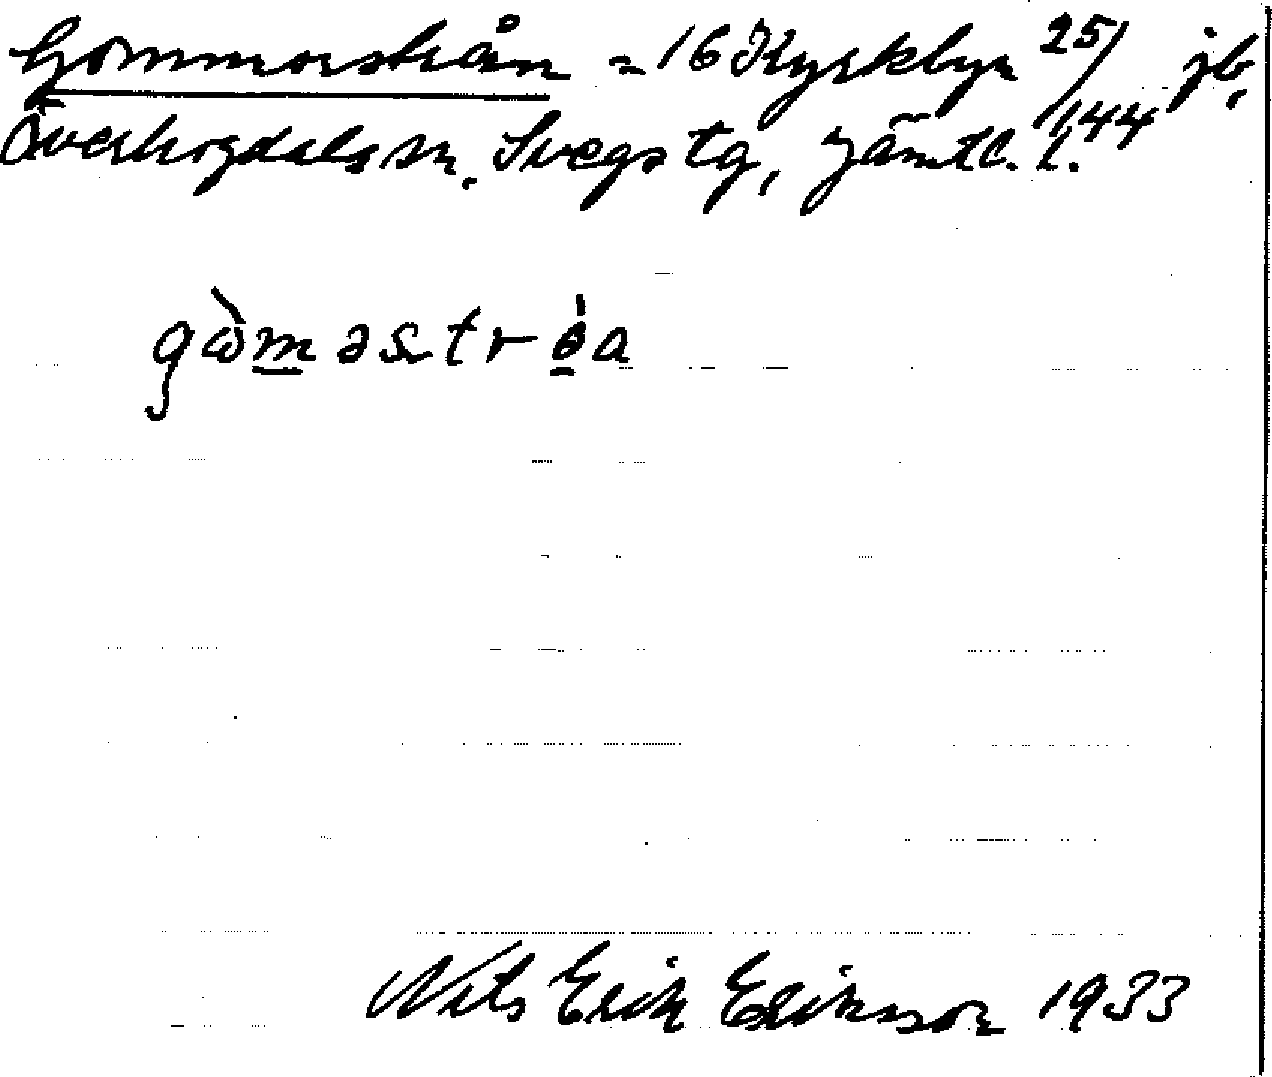 Gommorstrån = 16 Kyrkbyn 25/144 jb,
Överhogdals sn. Svegs tg, Jämtl. l.
gὼm̲əstrò̲a
Nils Erik Eriksson 1933